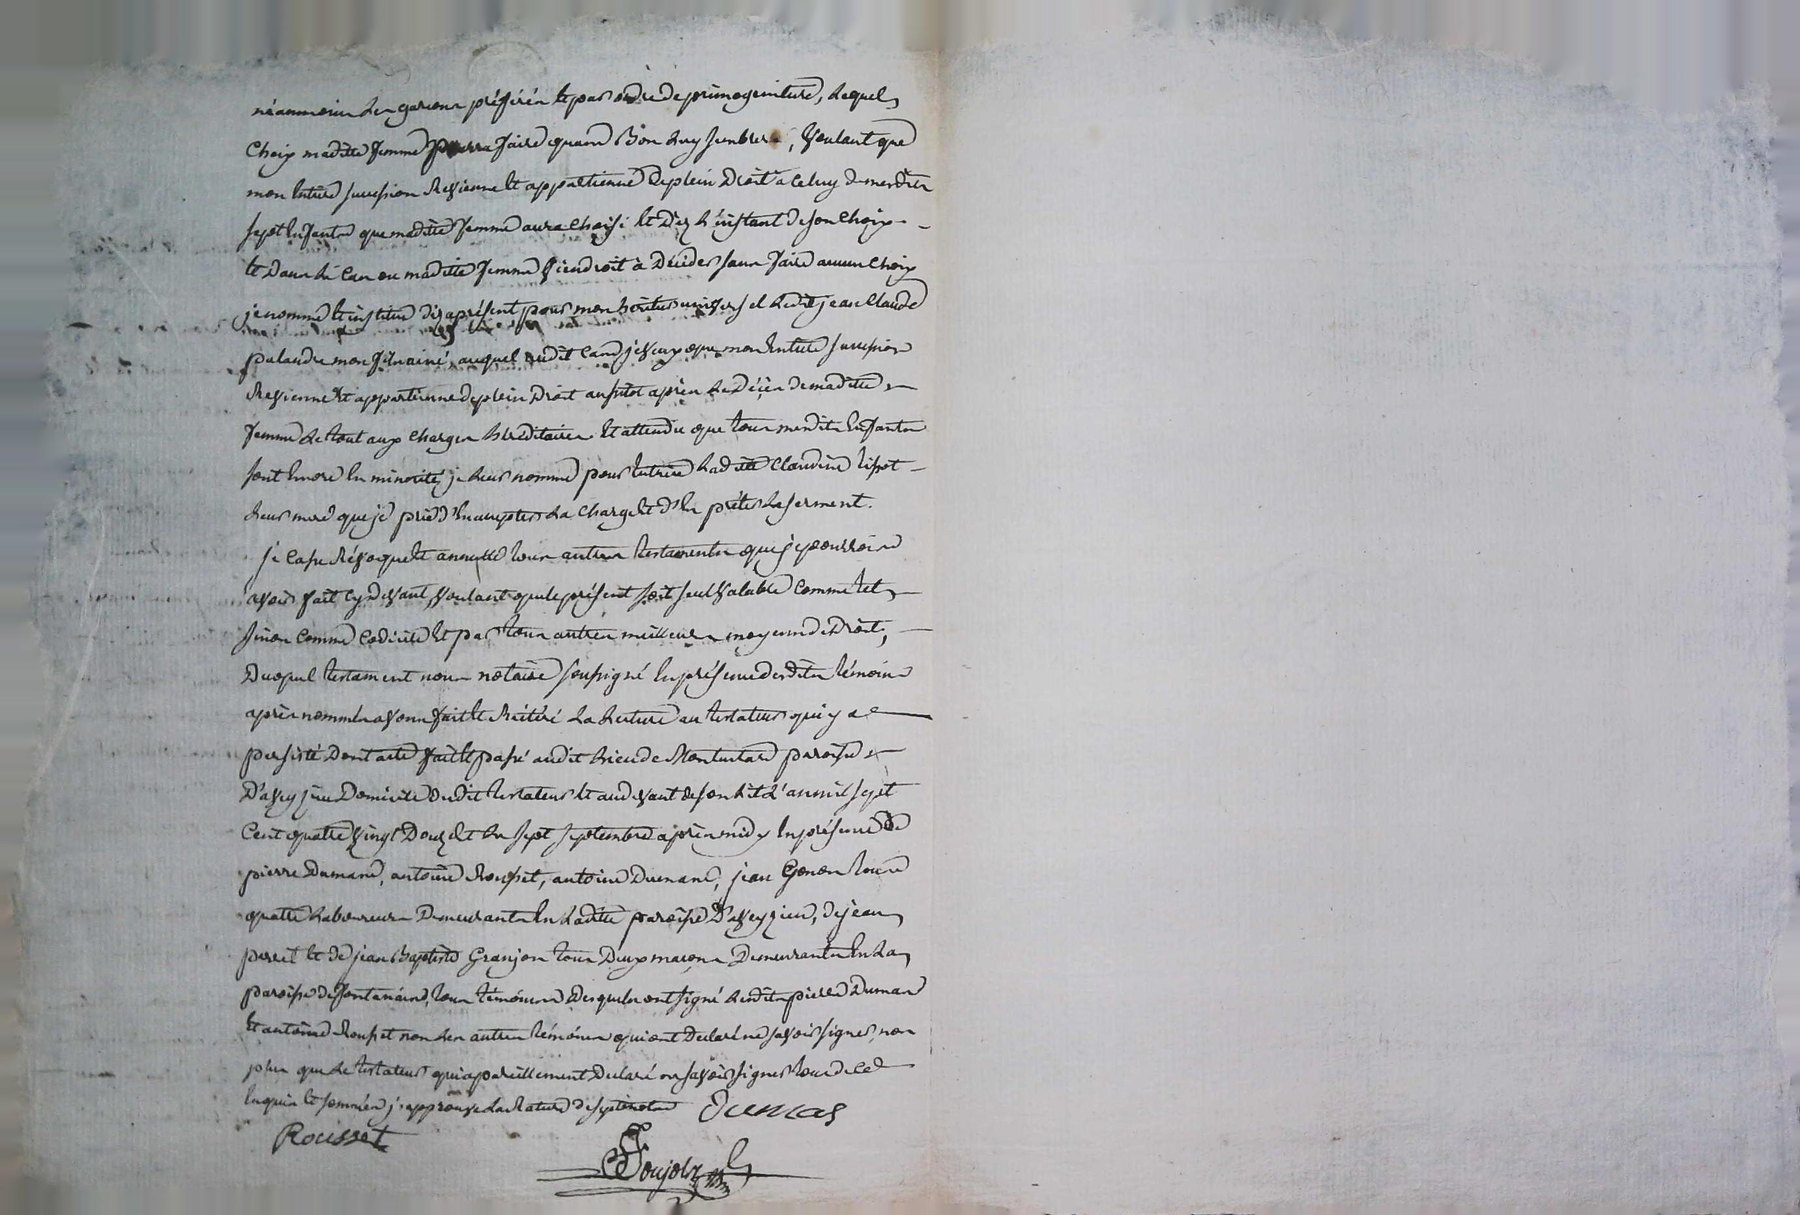 néanmoin les garcons préférés et par ordre de primogeniture, lequel
choix maditte femme pourra faire quand bon luy semblera, voulant que
mon entiere succession revienne et appartienne de plein droit a celuy de mesdits
sept enfants que maditte femme aura choisi et dez l'instant de son choix
et dans le cas ou maditte femme viendroit à décéder sans faire aucun choix
je nomme et institue dez aprésent pour mon héritier universel ledit jean Claude
palandre mon fils ainé, auquel audit cas je veux que mon entiere succession
revienne et appartienne de plein droit aussitot après le décès de maditte
femme le tout aux charges héréditaires et attendu que tous mesdits enfants
sont encore en minorité je leur nomme pour tutrice laditte Claudine
leur mere que je prie d'en accepter la charge et d'en préter le serment.
je casse révoque et annulle tous autres testaments que je pourrois
avoir fait cy devant, voulant que le présent soit seul valable comme tel
sinon comme codicile et par tous autres meilleurs moyens de droit,
Duquel testament nous notaire soussigné en présence desdits témoins
après nommés avons fait et réitéré la lecture au testateur qui y a
persisté dont acte fait et passé audit lieu de paroisse
d'aveyzieu domicile dudit testateur et au devant de son lit l'an mil sept
cent quatre vingt douze et le sept septembre après midy en présence de
pierre Dumand, antoine Rousset, antoine Dumand, jean Gonon tous
quatre laboureurs demeurants en laditte paroisse d'aveyzieu, de jean
et de jean Baptiste Granjon tous deux maçons demeurants en la
paroisse de fontanès, tous témoins desquels ont signé lesdits pierre Dumand
et antoine Rousset non les autres témoins qui ont déclaré ne savoir signer, non
plus que le testateur qui a pareillement déclaré ne savoir signer tous de ce
enquis et sommés j'approuve la rature de septembre Dumas
Rousset